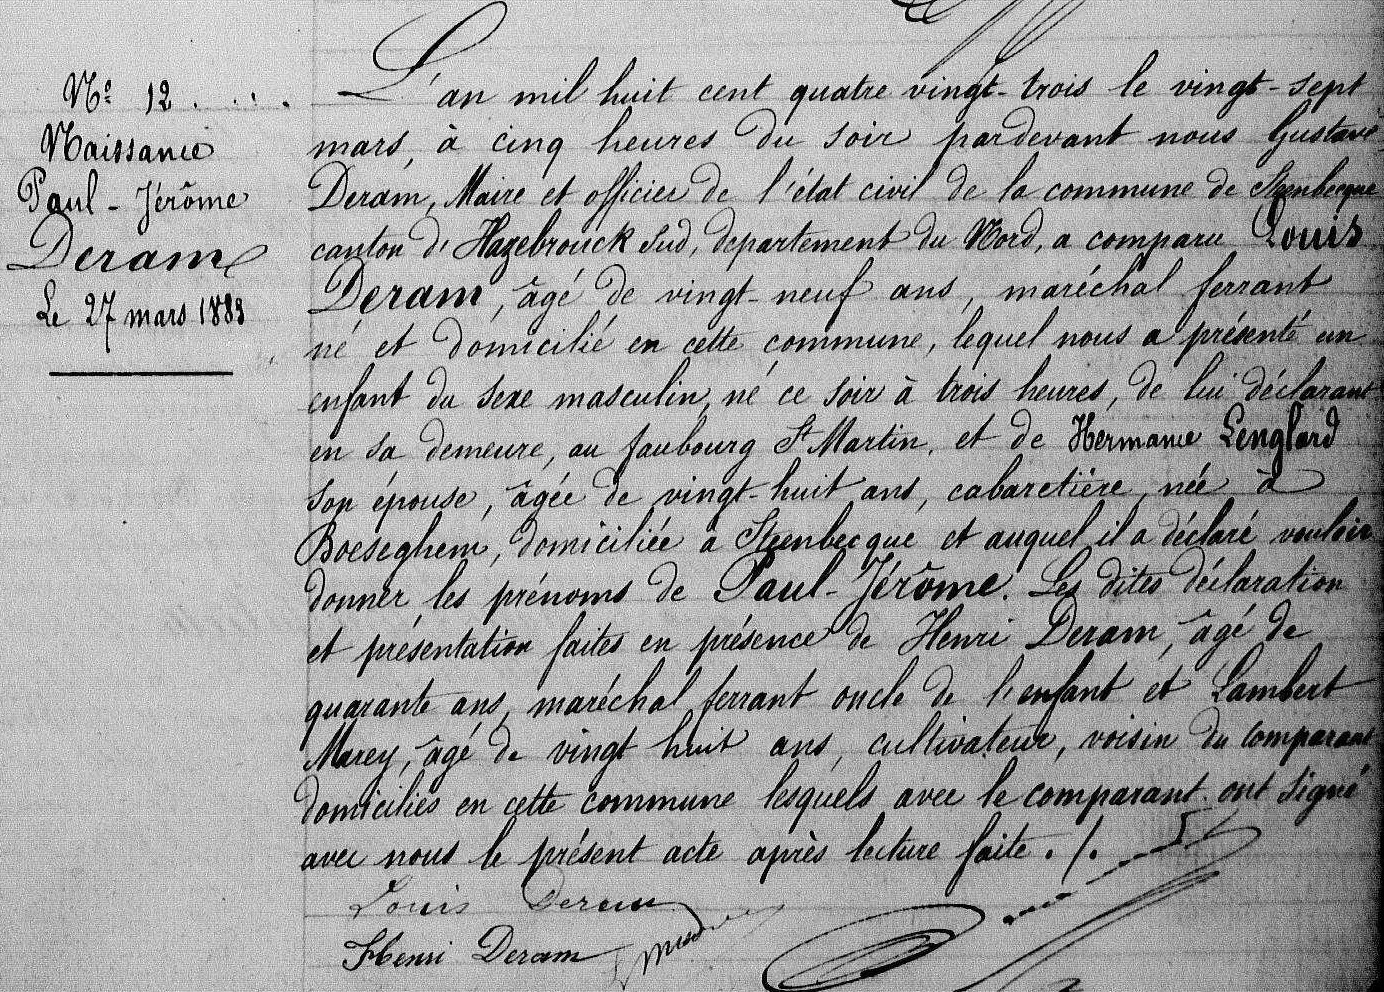 Nº 12
Naissance
Paul-Jérôme
Deram
Le 27 mars 1883
L'an mil huit cent quatre vingt-trois le vingt-sept
mars, à cinq heures du soir pardevant nous Gustave
Deram, Maire et officier de l'état civil de la commune de Steenbecque
canton d'Hazebrouck sud, département du Nord, a comparu Louis
Deram, âgé de vingt-neuf ans, maréchal ferrant
né et domicilié en cette commune, lequel nous a présenté un
enfant du sexe masculin, né ce soir à trois heures, de lui déclarant
en sa demeure, au faubourg St Martin, et de Hermance Lenglard
son épouse, âgée de vingt-huit ans, cabaretière, née à
Boeseghem, domiciliée à Steenbecque et auquel il a déclaré vouloir
donner les prénoms de Paul-Jérôme. Les dites déclaration
et présentation faites en présence de Henri Deram, âgé de
quarante ans, maréchal ferrant oncle de l'enfant et Lambert
Marey, âgé de vingt huit ans, cultivateur, voisin du comparant
domiciliés en cette commune lesquels avec le comparant ont signé
avec nous le présent acte après lecture faite ./.
Louis Deram
Henri Deram